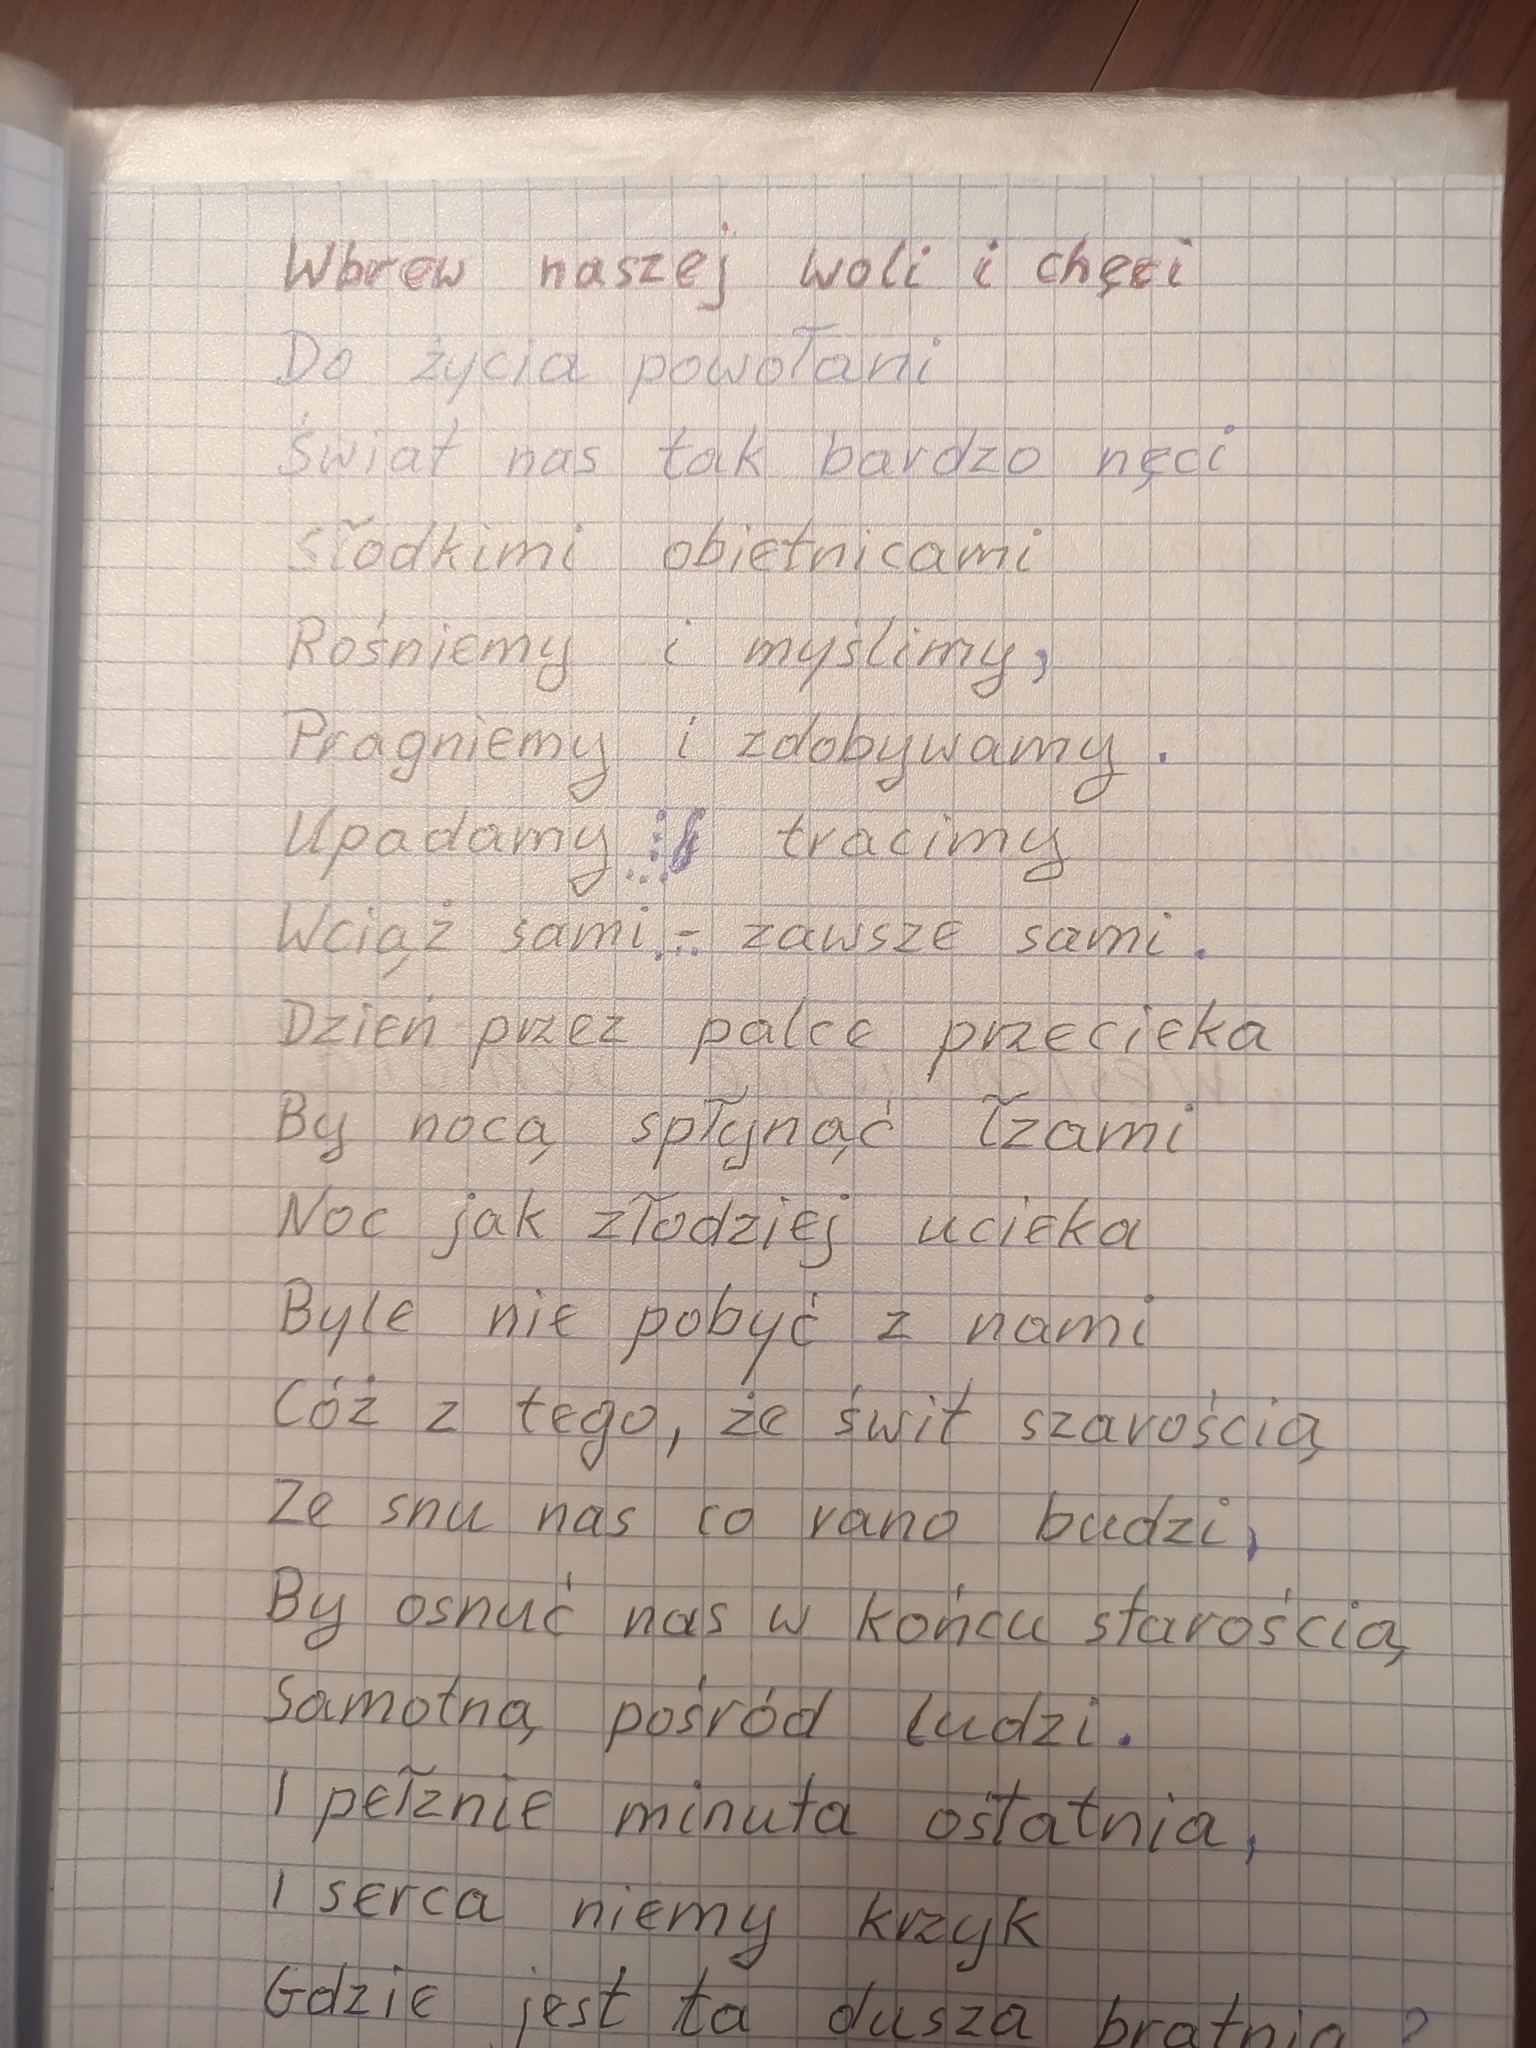 Wbrew naszej woli i chęci
Do życia powołani
Świat nas tak bardzo nęci
Słodkimi obietnicami
Rośniemy i myślimy,
Pragniemy i zdobywamy.
Upadamy tracimy
Wciąż sami - zawsze sami.
Dzień przez palce przecieka
By nocą spłynąć łzami
Noc jak złodziej ucieka
Byle nie pobyć z nami
Cóż z tego, że świt szarością
Ze snu nas co rano budzi,
By osnuć nas w końcu starością
Samotną pośród ludzi.
I pełznie minuta ostatnia,
I serca niemy krzyk
Gdzie jest ta dusza bratnia?